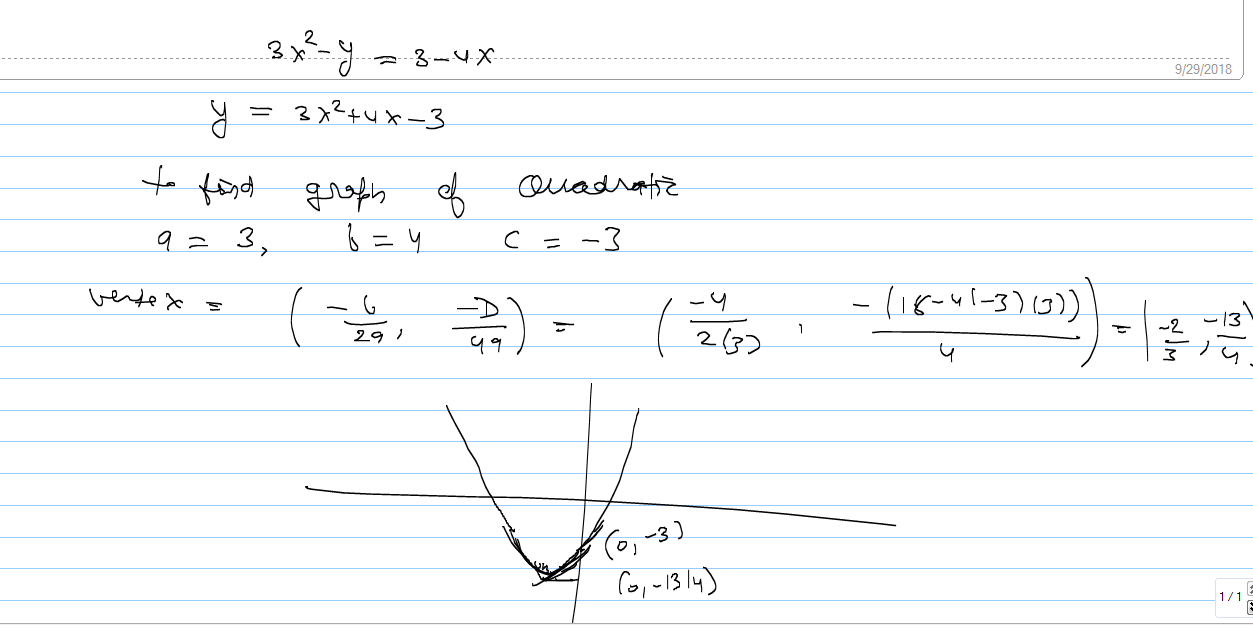 3x² - y = 3 - 4x
9/29/2018
y = 3x² + 4x - 3
to find graph of Quadratic
a = 3, b = 4 c = -3
vertex = (-b/2a, -D/4a) = (-4/2(3), -(16-4(-3)(3))/4) = (-2/3, -13/4)
(0, -3)
(0, -13/4)
1 / 1